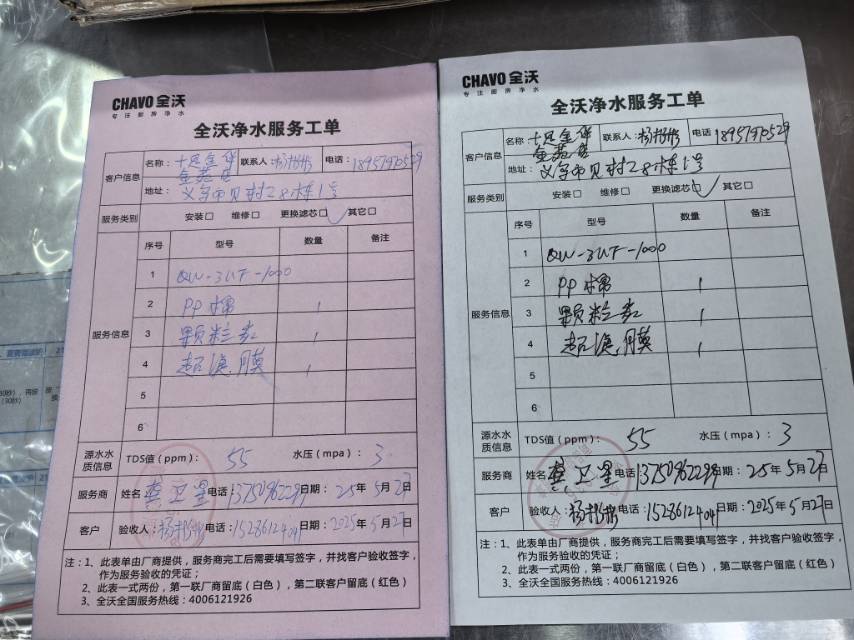 CHAVO 全沃
专注厨房净水
全沃净水服务工单
客户信息
名称：十足金华
联系人：杨
电话：18957970529
地址：义乌市贝村28栋1号
服务类别 安装□ 维修□ 更换滤芯□✓ 其它□
服务信息
序号 型号 数量 备注
1 QW-3UF-1000
2 PP棉 1
3 颗粒炭 1
4 超滤膜 1
5
6
源水水质信息 TDS值（ppm）： 55 水压（mpa）： 3
服务商 姓名 龚卫星 电话：日期：25年5月27日
客户 验收人：杨 电话：日期：2025年5月27日
注：1、此表单由厂商提供，服务商完工后需要填写签字，并找客户验收签字，
作为服务验收的凭证；
2、此表一式两份，第一联厂商留底（白色），第二联客户留底（红色）
3、全沃全国服务热线：4006121926
CHAVO 全沃
专注厨房净水
全沃净水服务工单
客户信息
名称：十足金华
联系人：杨
电话 18957970529
地址：义乌市贝村28栋1号
服务类别 安装□ 维修□ 更换滤芯□✓ 其它□
服务信息
序号 型号 数量 备注
1 QW-3UF-1000
2 PP棉 1
3 颗粒炭 1
4 超滤膜 1
5
6
源水水质信息 TDS值（ppm）： 55 水压（mpa）： 3
服务商 姓名 龚卫星 电话：日期：25年5月27日
客户 验收人：杨 电话：日期：2025年5月27日
注：1、此表单由厂商提供，服务商完工后需要填写签字，并找客户验收签字，
作为服务验收的凭证；
2、此表一式两份，第一联厂商留底（白色），第二联客户留底（红色）
3、全沃全国服务热线：4006121926